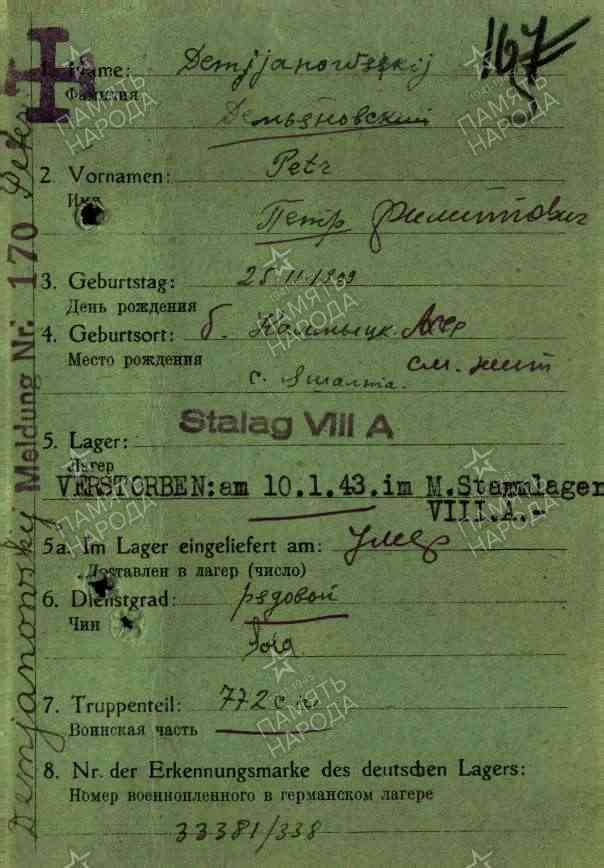 167
1. Name: Demjjanowsskij
Фамилия
Демьяновский
2. Vornamen: Petr
Имя
Петр Филиппович
3. Geburtstag: 25 11. 1909
День рождения
4. Geburtsort: б. Калмыцк. АССР
Место рождения см. жит
с.
5. Lager: Stalag VIII A
Лагерь
VERSTORBEN: am 10.1.43. im M.Stammlager
VIII.A.-
5a. Im Lager eingeliefert am: умер
Доставлен в лагер (число)
6. Dienstgrad: рядовой
Чин
Sold
7. Truppenteil: 772 с п
Воинская часть
8. Nr. der Erkennungsmarke des deutschen Lagers:
Номер военнопленного в германском лагере
33381/338
Demjanowskij Meldung Nr. 170 Peter
ПАМЯТЬ НАРОДА